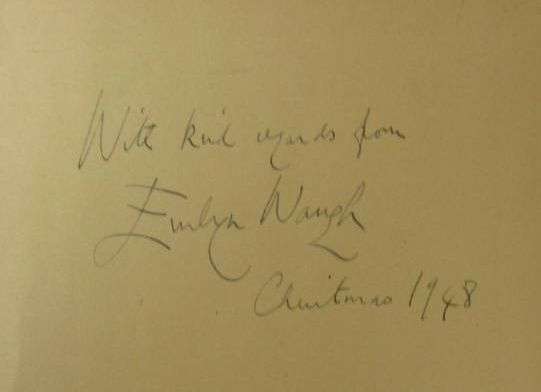 With kind regards from
Evelyn Waugh
Christmas 1948